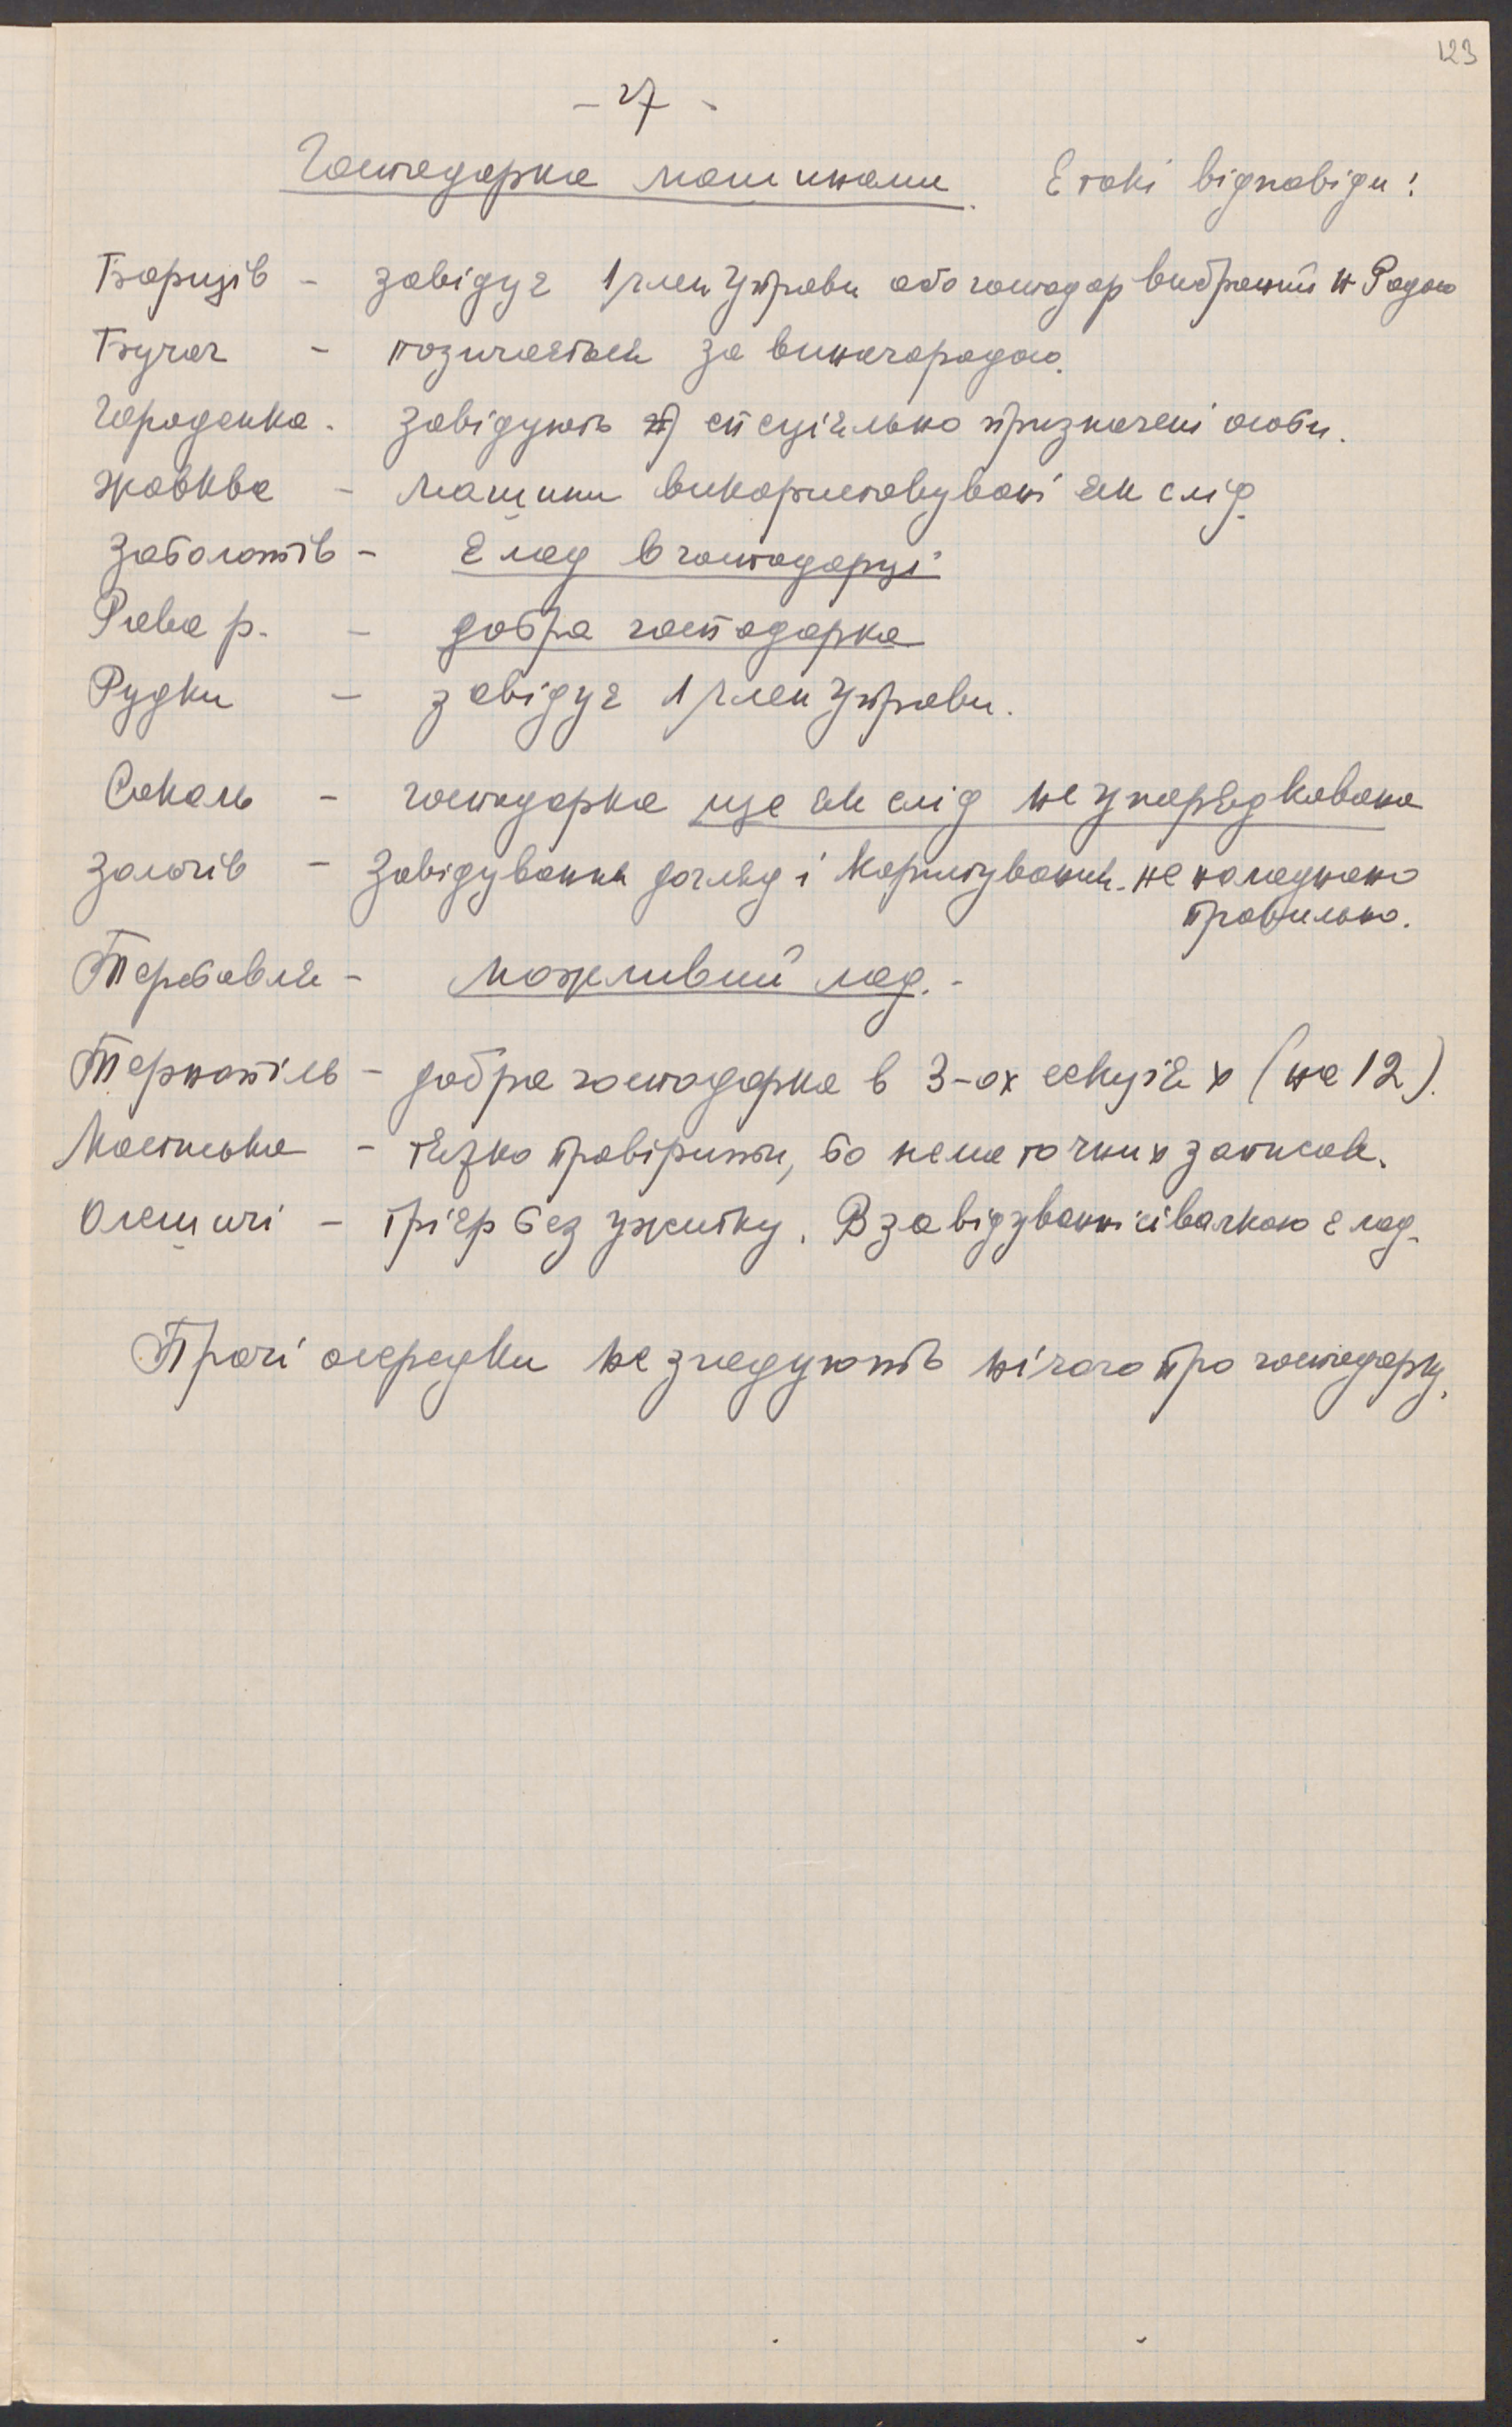 123
- 27 -
Господарка машинами. Є такі відповіди:
Борщів - завідує 1 член Управи або господар вибраний Н. Радою
Бучач - позичається за винагородою.
Городенка - завідують спеціяльно призначені особи.
Жовква - машини використовувані як слід.
Заболотів - є лад в господарці
Рава р. - добра господарка
Рудки - завідує 1 член Управи.
Сокаль - господарка ще як слід не упорядкована
Золочів - завідування догляд і користування не наладнано
правильно.
Теребовля - можливий лад. -
Тернопіль - добра господарка в 3-ох секціях (на 12).
Мостиська - тяжко провірити, бо нема точних записок.
Олешичі - трієр без ужитку. В завідуванні сівалкою є лад.
Прочі осередки не згадують нічого про господарку.